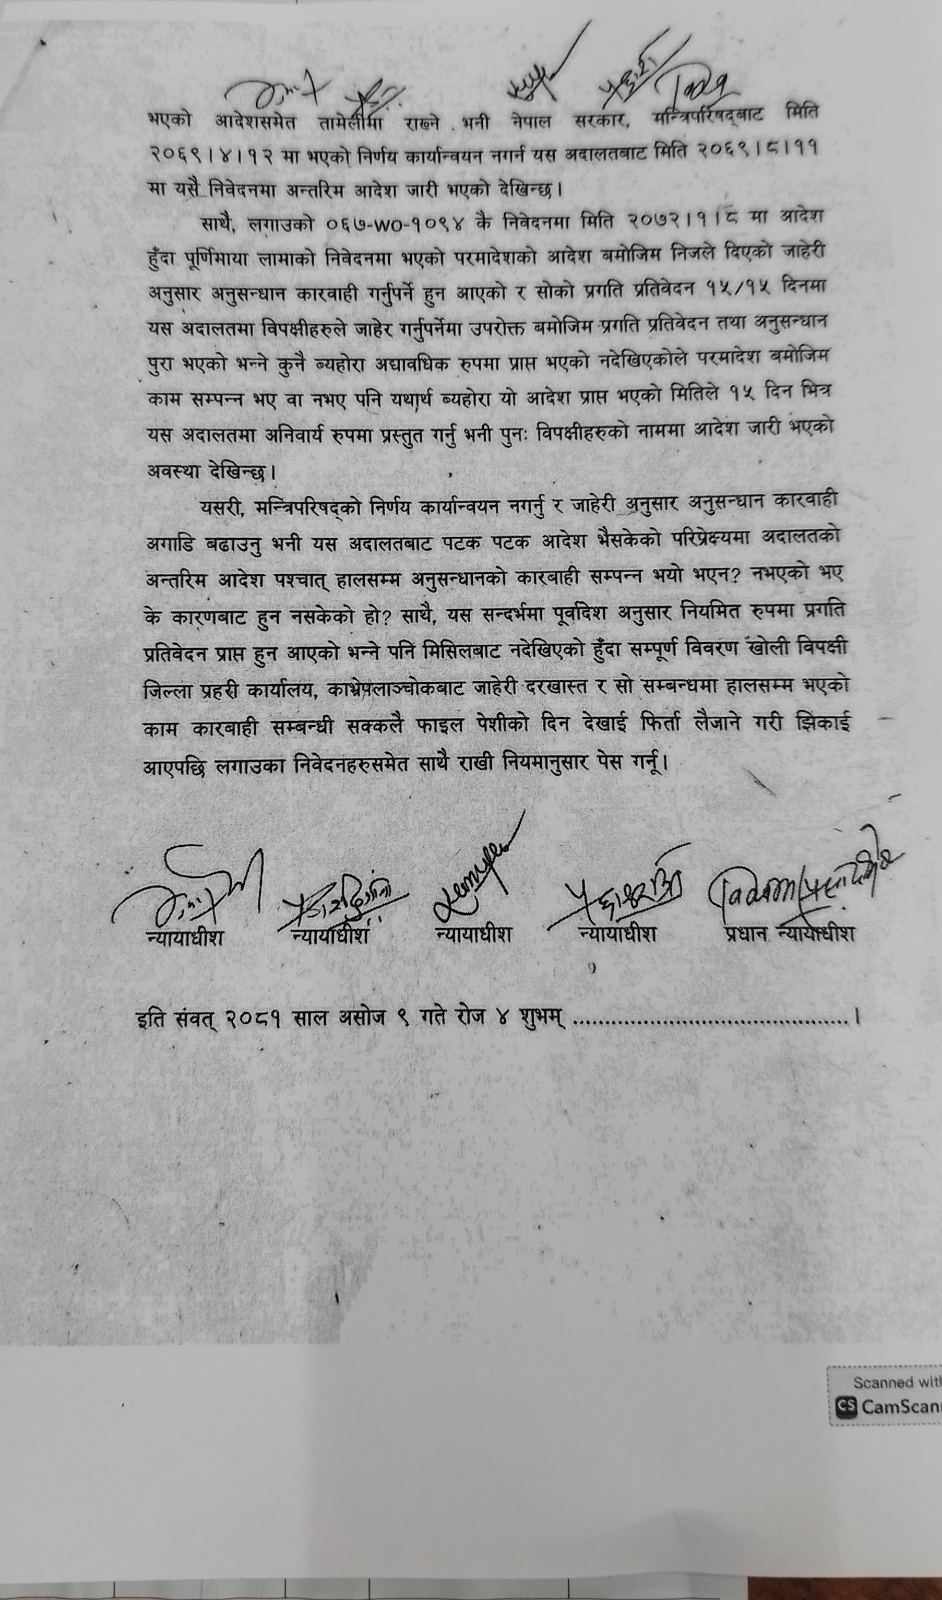 भएको आदेशसमेत तामेलीमा राख्ने भनी नेपाल सरकार, मन्त्रिपरिषद्बाट मिति
२०६९।४।१२ मा भएको निर्णय कार्यान्वयन नगर्न यस अदालतबाट मिति २०६९।८।११
मा यसै निवेदनमा अन्तरिम आदेश जारी भएको देखिन्छ।
साथै, लगाउको ०६७-WO-१०९४ कै निवेदनमा मिति २०७२।१।८ मा आदेश
हुँदा पूर्णिमाया लामाको निवेदनमा भएको परमादेशको आदेश बमोजिम निजले दिएको जाहेरी
अनुसार अनुसन्धान कारवाही गर्नुपर्ने हुन आएको र सोको प्रगति प्रतिवेदन १५/१५ दिनमा
यस अदालतमा विपक्षीहरुले जाहेर गर्नुपर्नेमा उपरोक्त बमोजिम प्रगति प्रतिवेदन तथा अनुसन्धान
पुरा भएको भन्ने कुनै ब्यहोरा अद्यावधिक रुपमा प्राप्त भएको नदेखिएकोले परमादेश बमोजिम
काम सम्पन्न भए वा नभए पनि यथार्थ ब्यहोरा यो आदेश प्राप्त भएको मितिले १५ दिन भित्र
यस अदालतमा अनिवार्य रुपमा प्रस्तुत गर्नु भनी पुनः विपक्षीहरुको नाममा आदेश जारी भएको
अवस्था देखिन्छ।
यसरी, मन्त्रिपरिषद्को निर्णय कार्यान्वयन नगर्नु र जाहेरी अनुसार अनुसन्धान कारवाही
अगाडि बढाउनु भनी यस अदालतबाट पटक पटक आदेश भैसकेको परिप्रेक्ष्यमा अदालतको
अन्तरिम आदेश पश्चात् हालसम्म अनुसन्धानको कारबाही सम्पन्न भयो भएन? नभएको भए
के कारणबाट हुन नसकेको हो? साथै, यस सन्दर्भमा पूर्वादेश अनुसार नियमित रुपमा प्रगति
प्रतिवेदन प्राप्त हुन आएको भन्ने पनि मिसिलबाट नदेखिएको हुँदा सम्पूर्ण विवरण खोली विपक्षी
जिल्ला प्रहरी कार्यालय, काभ्रेपलाञ्चोकबाट जाहेरी दरखास्त र सो सम्बन्धमा हालसम्म भएको
काम कारबाही सम्बन्धी सक्कलै फाइल पेशीको दिन देखाई फिर्ता लैजाने गरी झिकाई
आएपछि लगाउका निवेदनहरुसमेत साथै राखी नियमानुसार पेस गर्नू।
न्यायाधीश न्यायाधीश न्यायाधीश न्यायाधीश प्रधान न्यायाधीश
इति संवत् २०८१ साल असोज ९ गते रोज ४ शुभम् ..........................................।
Scanned with
CS CamScan